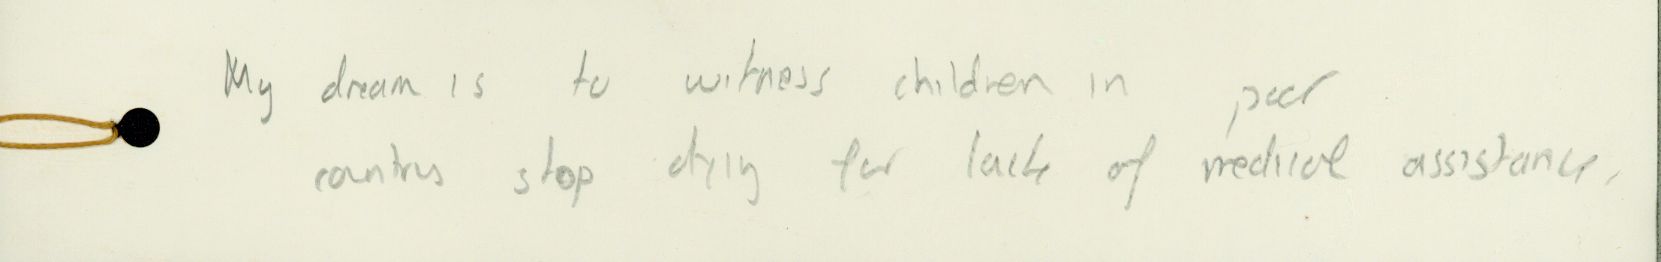 My dream is to witness children in poor
countries stop dying for lack of medical assistance.